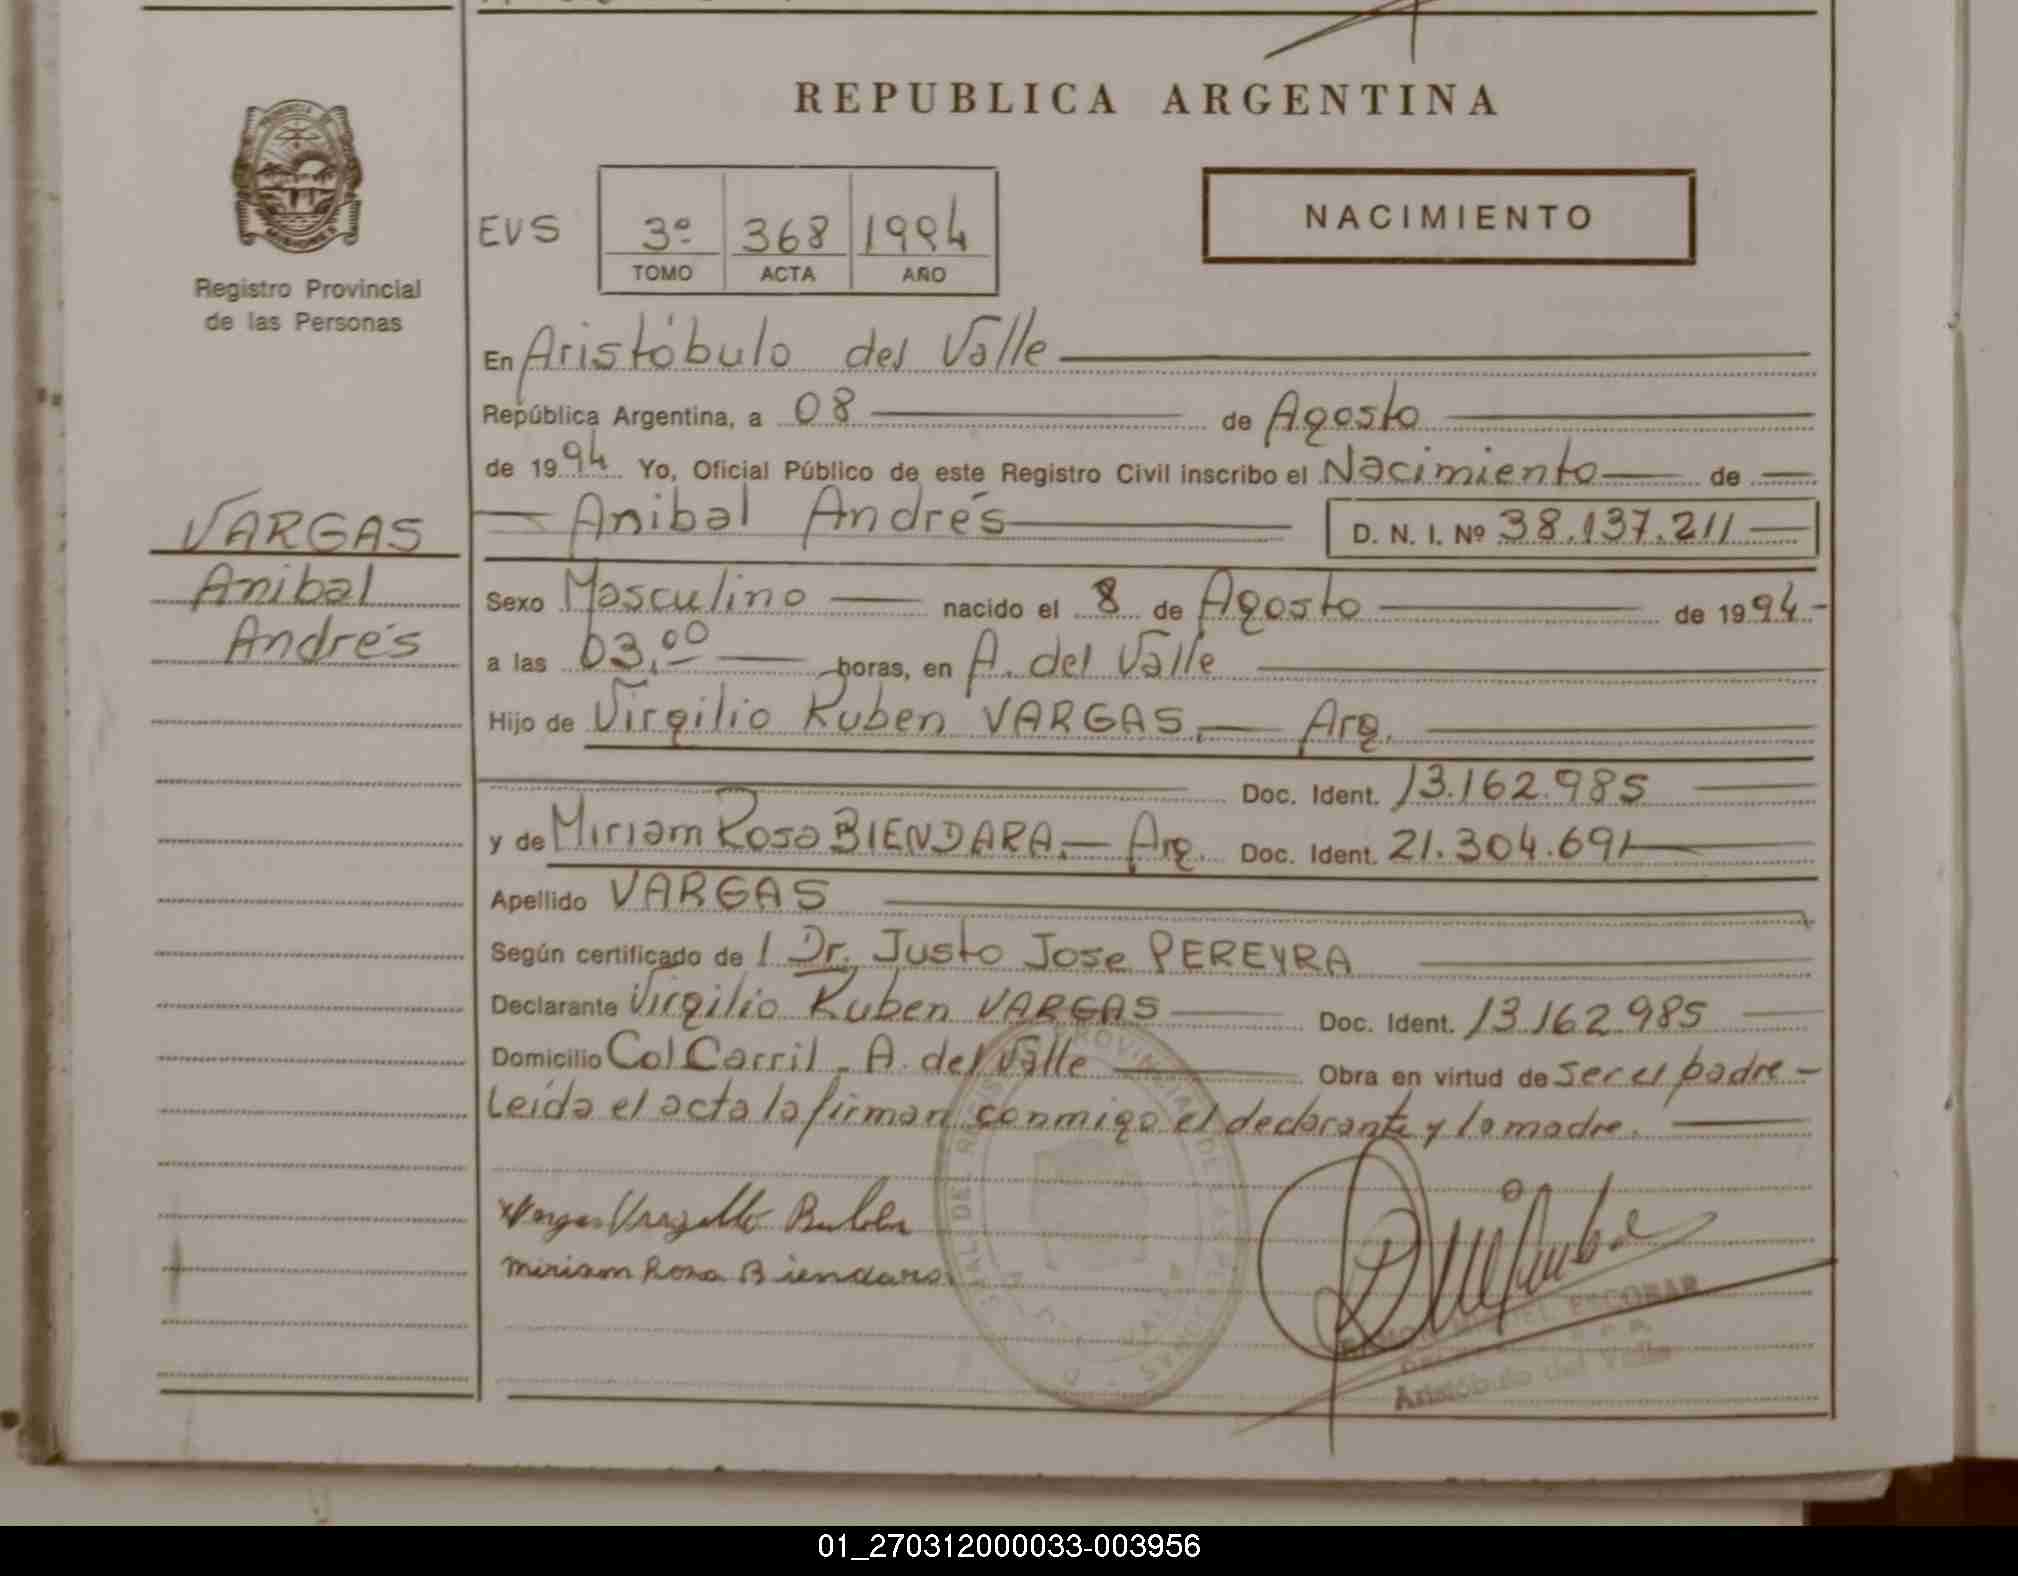 REPUBLICA ARGENTINA
Registro Provincial
de las Personas
EVS
3º 368 1994
TOMO ACTA AÑO
NACIMIENTO
VARGAS
Anibal
Andrés
En Aristóbulo del Valle
República Argentina, a 08 de Agosto
de 1994 Yo, Oficial Público de este Registro Civil inscribo el Nacimiento de
Anibal Andrés D. N. I. Nº 38.137.211
Sexo Masculino nacido el 8 de Agosto de 1994
a las 03,00 horas, en A. del Valle
Hijo de Virgilio Ruben VARGAS. Arg.
Doc. Ident. 13.162.985
y de Miriam Rosa BIENDARA. Arg. Doc. Ident. 21.304.691
Apellido VARGAS
Según certificado de l Dr. Justo Jose PEREYRA
Declarante Virgilio Ruben VARGAS Doc. Ident. 13.162.985
Domicilio Col Carril. A. del Valle Obra en virtud de ser el padre
Leída el acta la firman conmigo el declarante y la madre.
Miriam Rosa Biendara
ESCOBAR
Aristóbulo del Valle
01_270312000033-003956